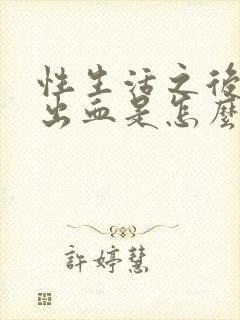 性生活之後
出血是怎麼
許婷慧